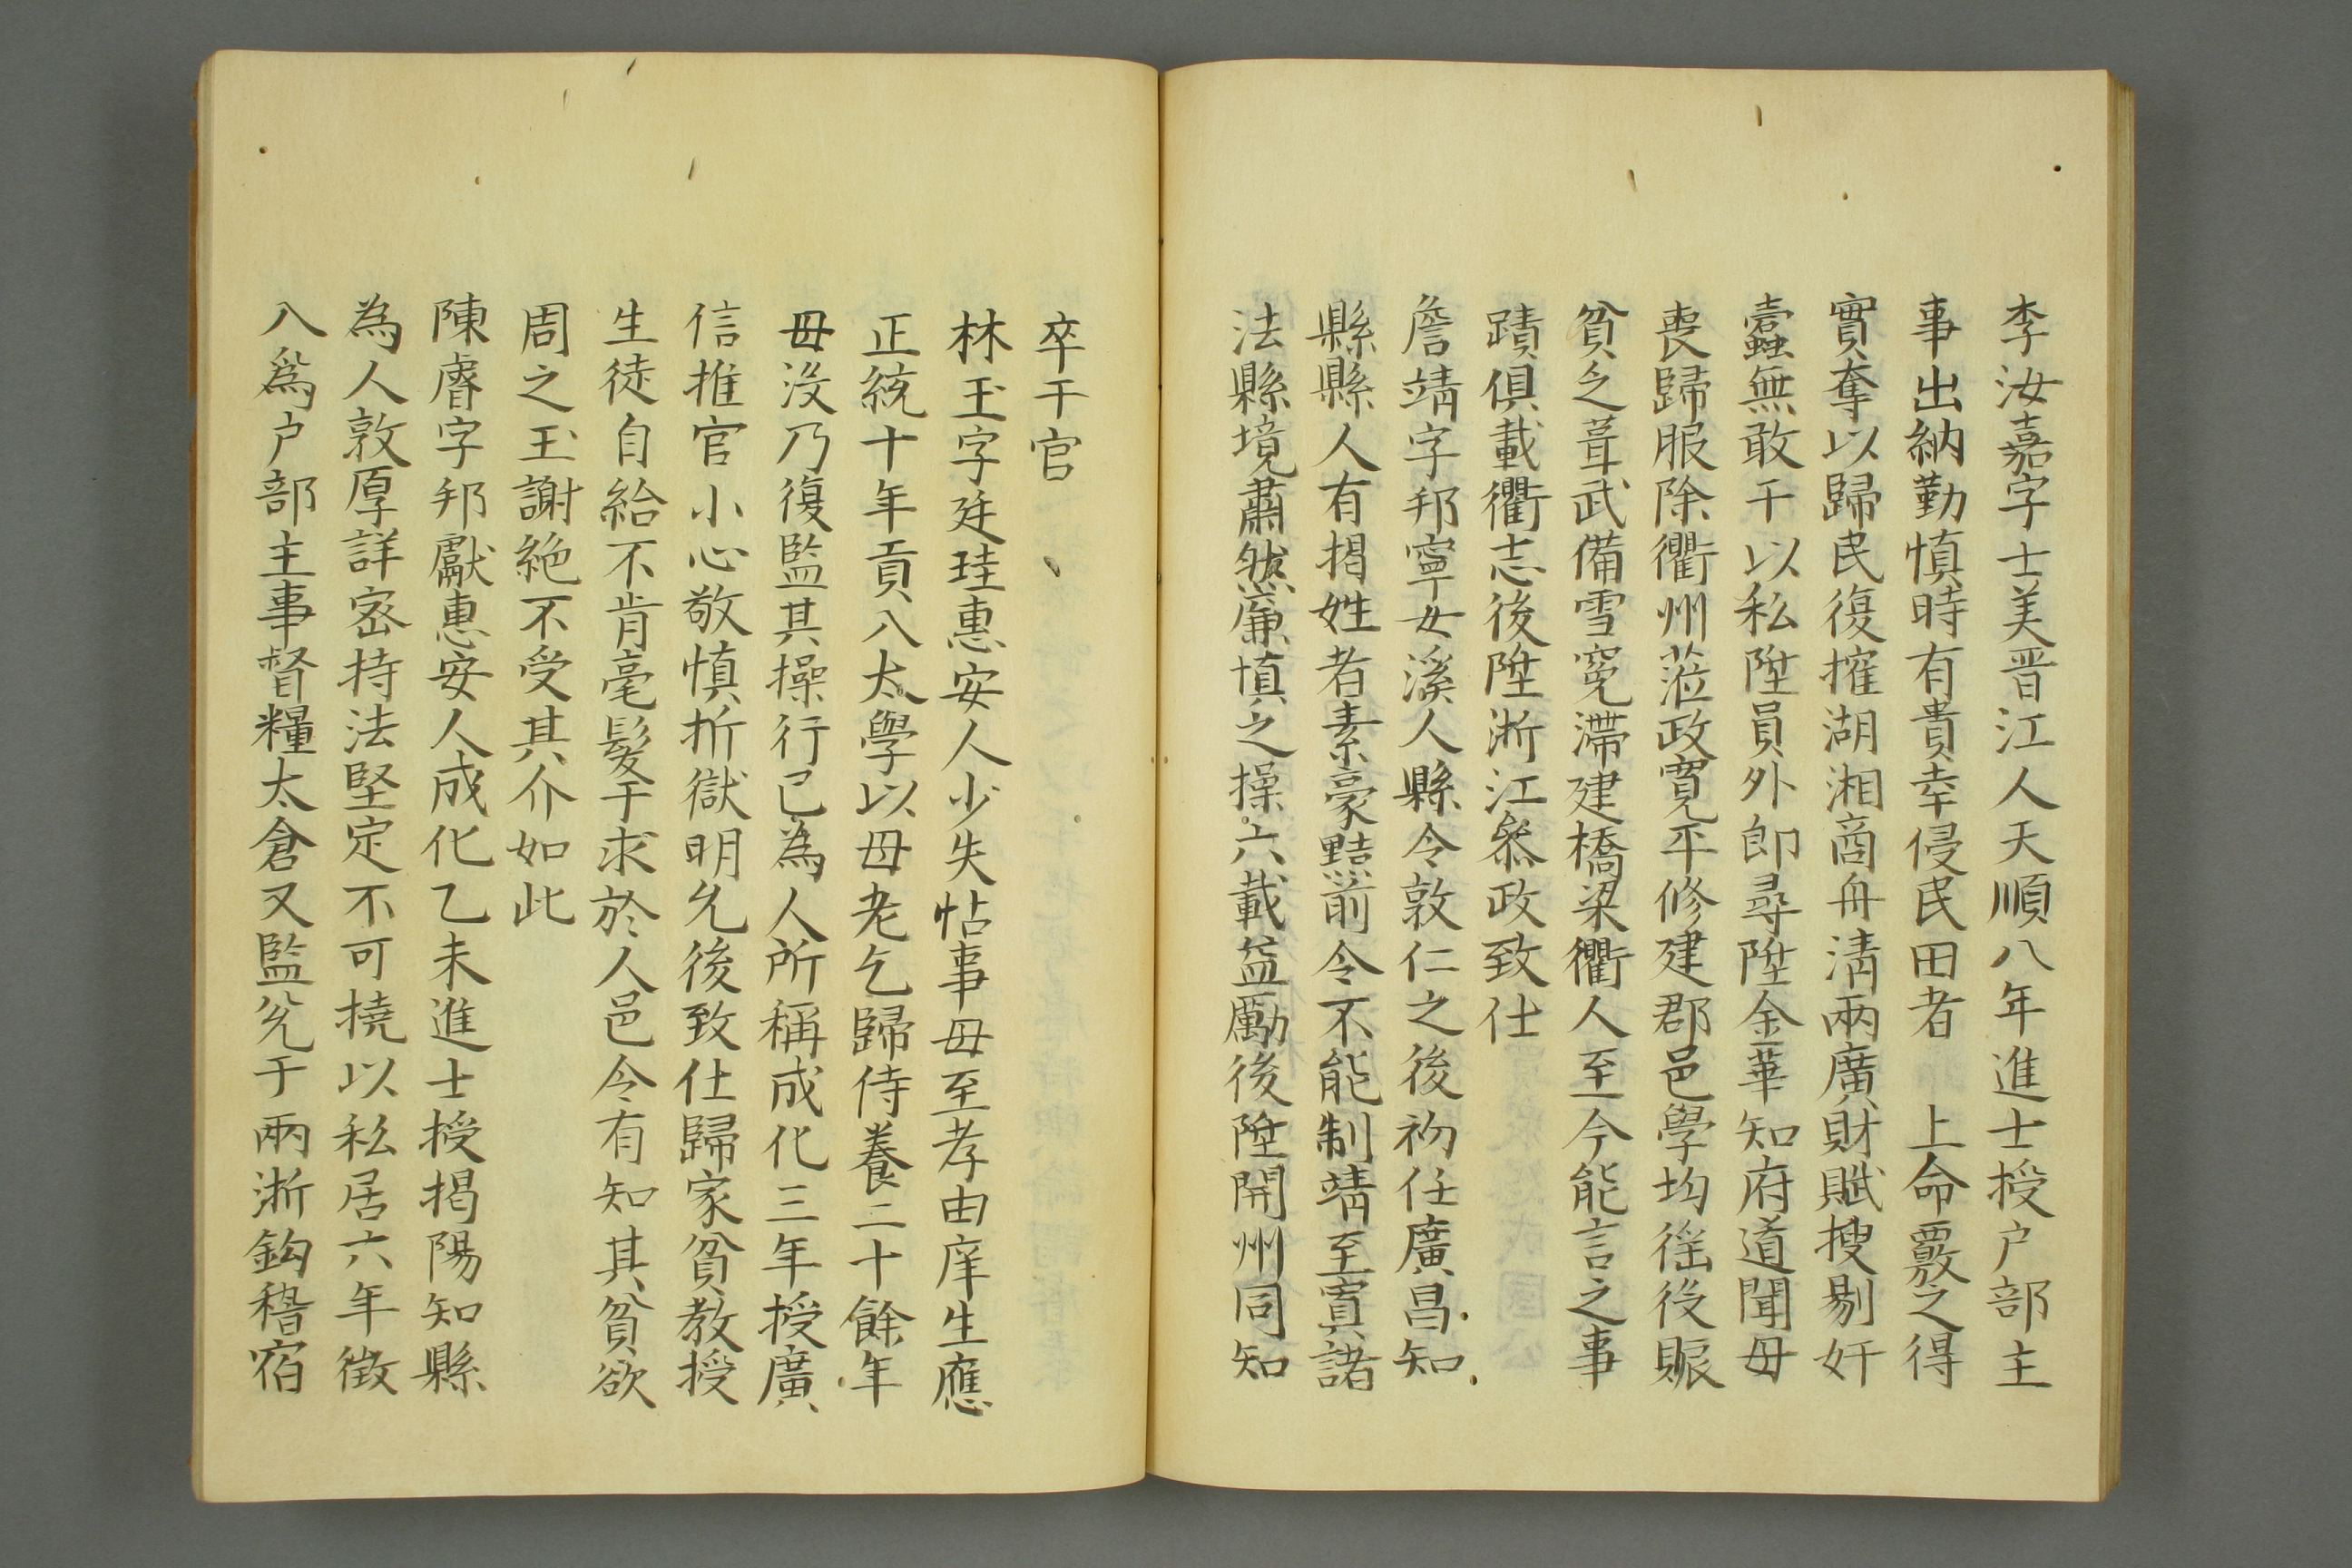 李汝嘉字士美晋江人天順八年進士授户部主
事出納勤慎時有貴幸侵民田者　上命覈之得
實奪以歸民復搉湖湘商舟淸兩廣財賦搜剔奸
蠹無敢干以私陞員外郎尋陞金華知府道聞毋
喪歸服除衢州蒞政寬平修建郡邑學均徭役賑
貧乏葺武備雪寃滯建橋梁衢人至今能言之事
蹟俱載衢志後陞浙江叅政致仕
詹靖字邦寧安溪人縣令敦仁之後初任廣昌知
縣縣人有揭姓者素豪黠前令不能制靖至寘諸
法縣境肅然廉慎之操六載益勵後陞開州同知
卒于官
林玉字廷珪惠安人少失怙事毋至孝由庠生應
正統十年貢入太學以毋老乞歸侍養二十餘年
毋没乃復監其操行已為人所稱成化三年授廣
信推官小心敬慎折獄明允後致仕歸家貧教授
生徒自給不肯毫髮干求於人邑令有知其貧欲
周之玉謝絶不受其介如此
陳睿字邦獻惠安人成化乙未進士授揭陽知縣
為人敦厚詳宻持法堅定不可撓以私居六年徴
入爲户部主事督糧太倉又監兊于兩浙鈎稽宿